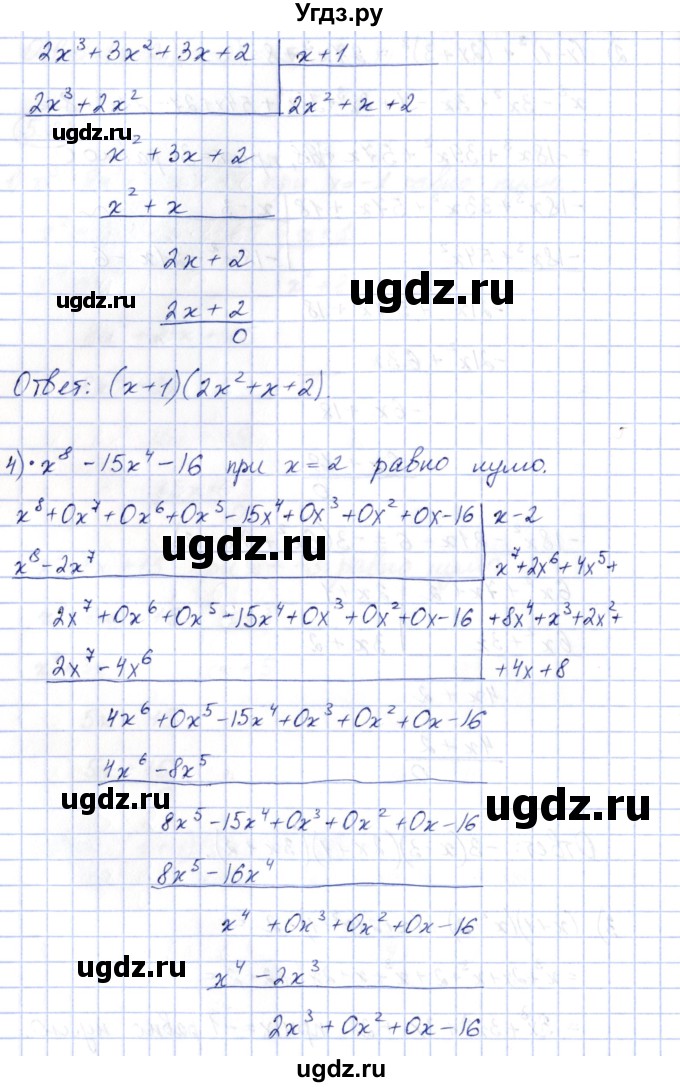 Угдз.ру
2x³+3x²+3x+2 | x+1
2x³+2x² | 2x²+x+2
ugdz.ru
x²+3x+2
x²+x
2x+2
ugdz.ru
ugdz.ru
2x+2
0
Ответ: (x+1)(2x²+x+2).
4)• x⁸-15x⁴-16 при x=2 равно нулю.
x⁸+0x⁷+0x⁶+0x⁵-15x⁴+0x³+0x²+0x-16 | x-2
ugdz.ru
x⁸-2x⁷ | x⁷+2x⁶+4x⁵+
2x⁷+0x⁶+0x⁵-15x⁴+0x³+0x²+0x-16 | +8x⁴+x³+2x²+
2x⁷-4x⁶ | +4x+8
4x⁶+0x⁵-15x⁴+0x³+0x²+0x-16
4x⁶-8x⁵
ugdz.ru
ugdz.ru
8x⁵-15x⁴+0x³+0x²+0x-16
8x⁵-16x⁴
x⁴+0x³+0x²+0x-16
ugdz.ru
x⁴-2x³
2x³+0x²+0x-16
ugdz.ru